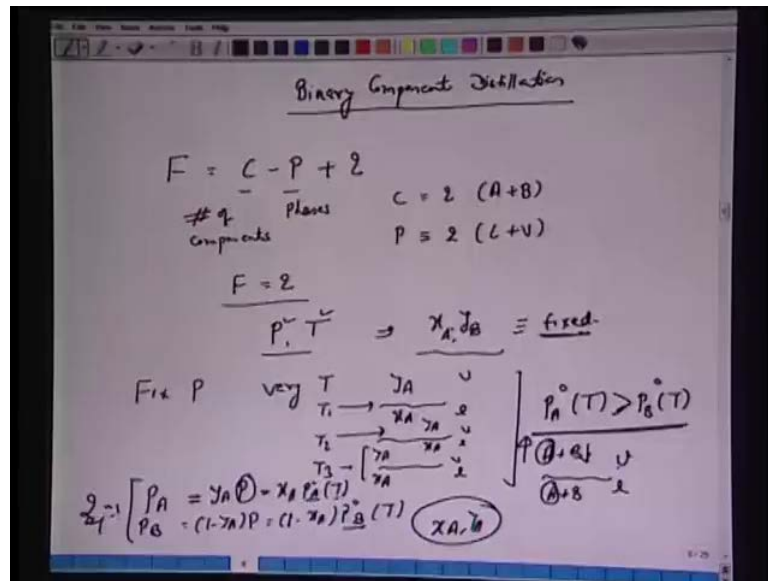 Binary Component Distillation
F = C - P + 2
# of components
Phases
C = 2 (A+B)
P = 2 (L+V)
F = 2
P, T ⇒ xA, yB ≡ fixed.
Fix P vary T yA v
T1 → xA l
T2 → yA v
xA l
T3 - yA v
xA l
PA°(T) > PB°(T)
A + B v
A+B l
PA = yA P = xA PA°(T)
PB = (1-yA)P = (1-xA) PB°(T)
xA, yA